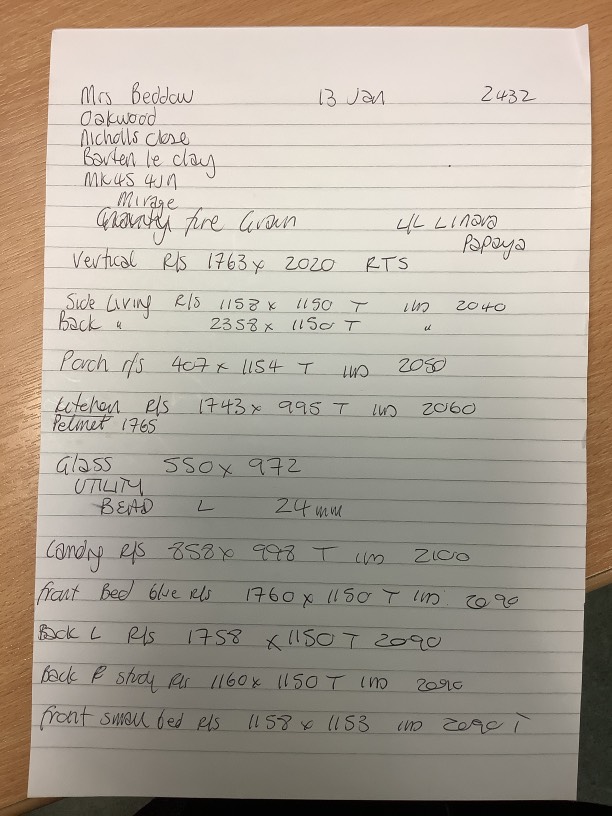 Mrs Beddow 13 Jan 2432
Oakwood
Nicholls close
Barten le clay
MK45 4JN
Mirage
fire Grain L/L Linara
Papaya
Vertical R/S 1763 x 2020 RTS
Side Living R/S 1158 x 1150 T 2040
Back " 2358 x 1150 T "
Porch r/s 407 x 1154 T 2050
Kitchen R/S 1743 x 995 T 2060
Pelmet 1765
Glass 550 x 972
UTILITY
BEAD L 24mm
R/S 858 x 998 T 2100
front Bed blue R/S 1760 x 1150 T 2090
Back L R/S 1758 x 1150 T 2090
Back R study R/s 1160 x 1150 T 2090
front small bed R/s 1158 x 1153 2090 T